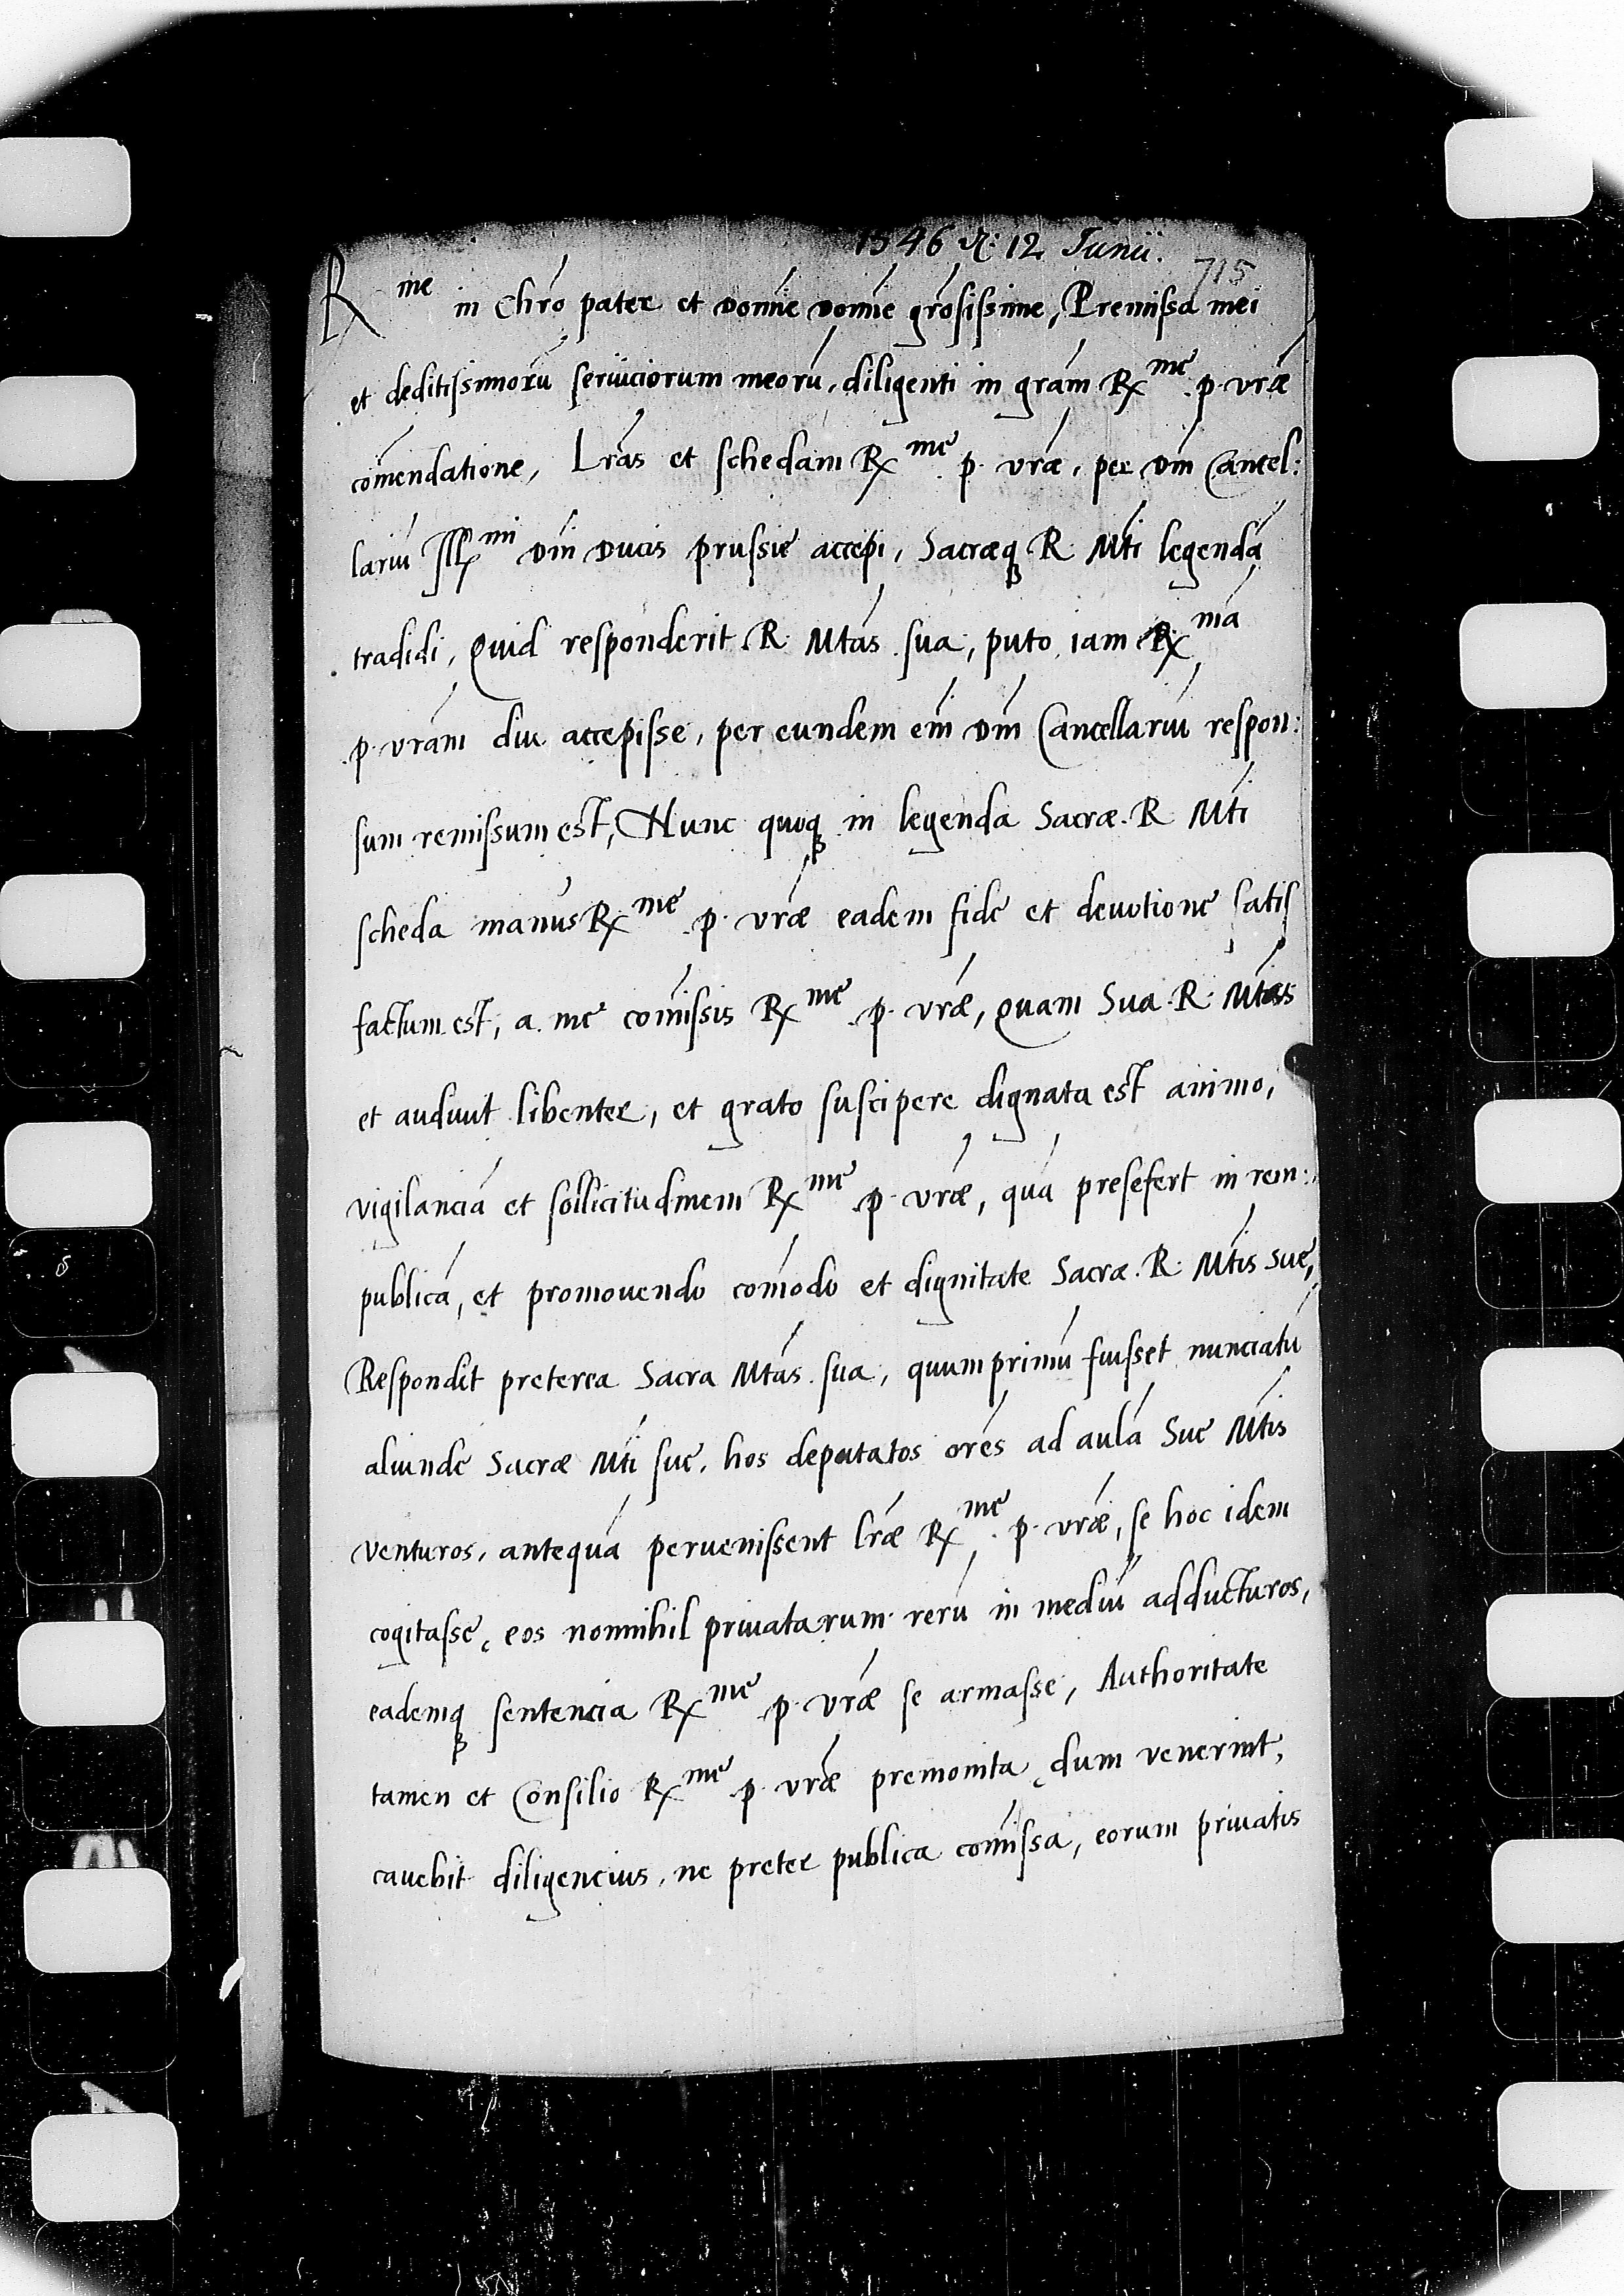 1546 R: 12 Junii.
715
Rme in Chro pater et Domine Domine grosissime, Premissa mei
et deditissimorũ seruiciorum meorũ, diligenti in gram Rx me. p. vræ
comendatione, Lras et schedam Rx me. p. vræ, per Dm Cancel:
lariũ Illmi Dm Ducis prussie accepi, Sacræq R. Mti legendã
tradidi, Quid responderit R. Mtas sua, puto iam Rx ma
p. vram diu accepisse, per eundem em Dm Cancellariũ respon:
sum remissum est, Hunc quoq in legenda Sacræ. R. Mti
scheda manus Rx me. p. vræ eadem fide et deuotione satis
factum est, a me comissis Rx me. p. vræ, quam Sua R. Mtas
et audiuit libenter, et grato suscipere dignata est animo,
vigilanciã et sollicitudinem Rx me. p. vræ, quã presefert in rem:
publicã, et promouendo comodo et dignitate Sacræ. R. Mtis suę,
Respondit preterea Sacra Mtas. sua, quumprimũ fuisset nunciatũ
aliunde Sacræ Mti suę, hos deputatos ores ad aulã Suę Mtis
venturos, antequã peruenissent lræ Rx me. p. vræ, se hoc idem
cogitasse, eos nonnihil priuatarum rerũ in mediũ adducturos,
eademq sentencia Rx me. p. vræ se armasse, Authoritate
tamen et Consilio Rx me. p. vræ premonita, dum venerint,
cauebit diligencius, ne preter publica comissa, eorum priuatis